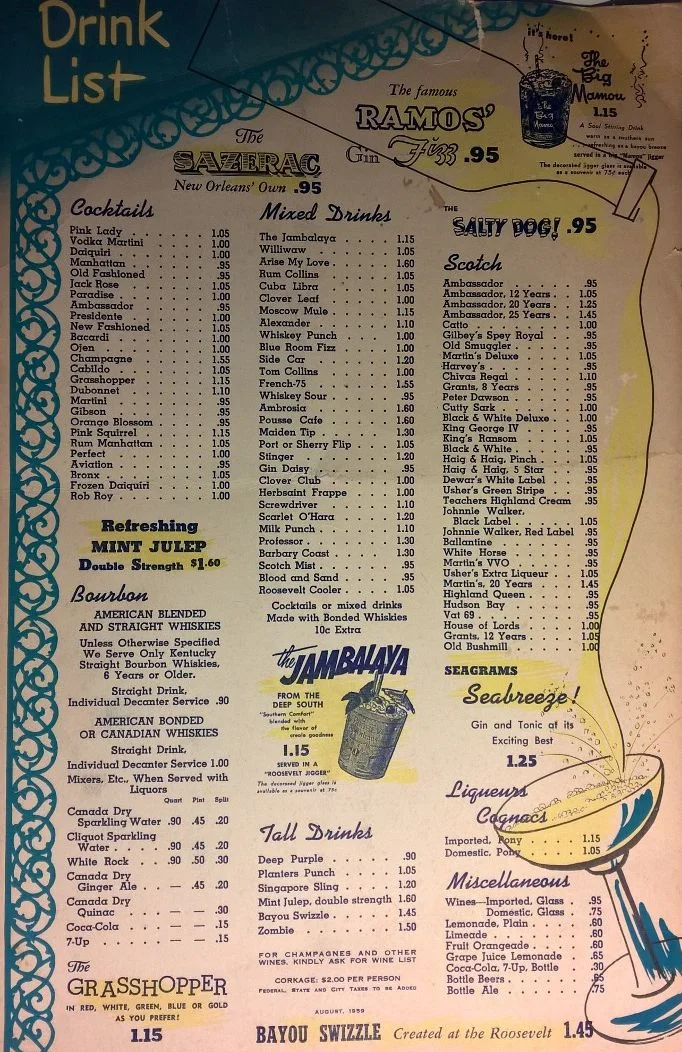 Drink
List
it's here!
The
Big
Mamou
1.15
A Soul Stirring Drink
warm as a southern sun
refreshing as a bayou breeze
served in a big "Mamou" jigger
The decorated jigger glass is available
as a souvenir at 75¢ each
The
Big
Mamou
The famous
RAMOS'
Gin Fizz .95
The
SAZERAC
New Orleans' Own .95
Cocktails
Pink Lady . . . . . 1.05
Vodka Martini . . . . 1.00
Daiquiri . . . . . 1.00
Manhattan . . . . . .95
Old Fashioned . . . . .95
Jack Rose . . . . . 1.05
Paradise . . . . . 1.00
Ambassador . . . . . .95
Presidente . . . . . 1.00
New Fashioned . . . . 1.05
Bacardi . . . . . 1.00
Ojen . . . . . 1.00
Champagne . . . . . 1.55
Cabildo . . . . . 1.05
Grasshopper . . . . . 1.15
Dubonnet . . . . . 1.10
Martini . . . . . .95
Gibson . . . . . .95
Orange Blossom . . . . .95
Pink Squirrel . . . . . 1.15
Rum Manhattan . . . . 1.05
Perfect . . . . . 1.00
Aviation . . . . . .95
Bronx . . . . . 1.05
Frozen Daiquiri . . . . 1.00
Rob Roy . . . . . 1.00
Refreshing
MINT JULEP
Double Strength $1.60
Bourbon
AMERICAN BLENDED
AND STRAIGHT WHISKIES
Unless Otherwise Specified
We Serve Only Kentucky
Straight Bourbon Whiskies,
6 Years or Older.
Straight Drink,
Individual Decanter Service .90
AMERICAN BONDED
OR CANADIAN WHISKIES
Straight Drink,
Individual Decanter Service 1.00
Mixers, Etc., When Served with
Liquors
Quart Pint Split
Canada Dry
Sparkling Water .90 .45 .20
Cliquot Sparkling
Water . . . .90 .45 .20
White Rock . . .90 .50 .30
Canada Dry
Ginger Ale . . — .45 .20
Canada Dry
Quinac . . — — .30
Coca-Cola . . . — — .15
7-Up . . . . — — .15
The
GRASSHOPPER
IN RED, WHITE, GREEN, BLUE OR GOLD
AS YOU PREFER!
1.15
Mixed Drinks
The Jambalaya . . . . 1.15
Williwaw . . . . . 1.05
Arise My Love . . . . . 1.60
Rum Collins . . . . . 1.05
Cuba Libra . . . . . 1.05
Clover Leaf . . . . . 1.00
Moscow Mule . . . . . 1.15
Alexander . . . . . 1.10
Whiskey Punch . . . . 1.00
Blue Room Fizz . . . . 1.00
Side Car . . . . . 1.20
Tom Collins . . . . . 1.00
French-75 . . . . . 1.55
Whiskey Sour . . . . . .95
Ambrosia . . . . . 1.60
Pousse Cafe . . . . . 1.60
Maiden Tip . . . . . 1.30
Port or Sherry Flip . . . 1.05
Stinger . . . . . 1.20
Gin Daisy . . . . . .95
Clover Club . . . . . 1.00
Herbsaint Frappe . . . . 1.00
Screwdriver . . . . . 1.10
Scarlet O'Hara . . . . 1.20
Milk Punch . . . . . 1.10
Professor . . . . . 1.30
Barbary Coast . . . . . 1.30
Scotch Mist . . . . . .95
Blood and Sand . . . . .95
Roosevelt Cooler . . . . 1.05
Cocktails or mixed drinks
Made with Bonded Whiskies
10c Extra
the JAMBALAYA
FROM THE
DEEP SOUTH
"Southern Comfort"
blended with
the flavor of
creole goodness
1.15
SERVED IN A
"ROOSEVELT JIGGER"
The decorated jigger glass is
available as a souvenir at 75¢
Tall Drinks
Deep Purple . . . . . .90
Planters Punch . . . . 1.05
Singapore Sling . . . . 1.20
Mint Julep, double strength 1.60
Bayou Swizzle . . . . . 1.45
Zombie . . . . . 1.50
FOR CHAMPAGNES AND OTHER
WINES, KINDLY ASK FOR WINE LIST
CORKAGE: $2.00 PER PERSON
FEDERAL, STATE AND CITY TAXES TO BE ADDED
AUGUST, 1959
THE
SALTY DOG! .95
Scotch
Ambassador . . . . . .95
Ambassador, 12 Years . . 1.05
Ambassador, 20 Years . . 1.25
Ambassador, 25 Years . . 1.45
Catto . . . . . 1.00
Gilbey's Spey Royal . . . .95
Old Smuggler . . . . . .95
Martin's Deluxe . . . . 1.05
Harvey's . . . . . .95
Chivas Regal . . . . . 1.10
Grants, 8 Years . . . . .95
Peter Dawson . . . . . .95
Cutty Sark . . . . . 1.00
Black & White Deluxe . . 1.00
King George IV . . . . .95
King's Ransom . . . . 1.05
Black & White . . . . . .95
Haig & Haig, Pinch . . . 1.05
Haig & Haig, 5 Star . . . .95
Dewar's White Label . . . .95
Usher's Green Stripe . . . .95
Teachers Highland Cream . .95
Johnnie Walker,
Black Label . . . . . 1.05
Johnnie Walker, Red Label .95
Ballantine . . . . . .95
White Horse . . . . . .95
Martin's VVO . . . . . .95
Usher's Extra Liqueur . . 1.05
Martin's, 20 Years . . . . 1.45
Highland Queen . . . . .95
Hudson Bay . . . . . .95
Vat 69 . . . . . .95
House of Lords . . . . 1.00
Grants, 12 Years . . . . 1.05
Old Bushmill . . . . . 1.00
SEAGRAMS
Seabreeze!
Gin and Tonic at its
Exciting Best
1.25
Liqueurs
Cognacs
Imported, Pony . . . . 1.15
Domestic, Pony . . . . 1.05
Miscellaneous
Wines—Imported, Glass . .95
Domestic, Glass . . .75
Lemonade, Plain . . . . .60
Limeade . . . . . .60
Fruit Orangeade . . . . .60
Grape Juice Lemonade . . .65
Coca-Cola, 7-Up, Bottle . . .30
Bottle Beers . . . . . .65
Bottle Ale . . . . . .75
BAYOU SWIZZLE Created at the Roosevelt 1.45